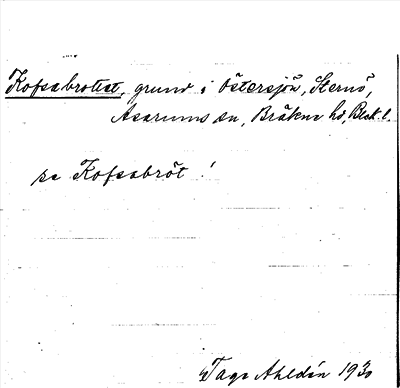 Kofsabrotet, grund i Östersjön, Sternö,
Asarums sn, Bräkne hd, Blek. l.
se Kofsabröt!
Tage Ahldén 1930